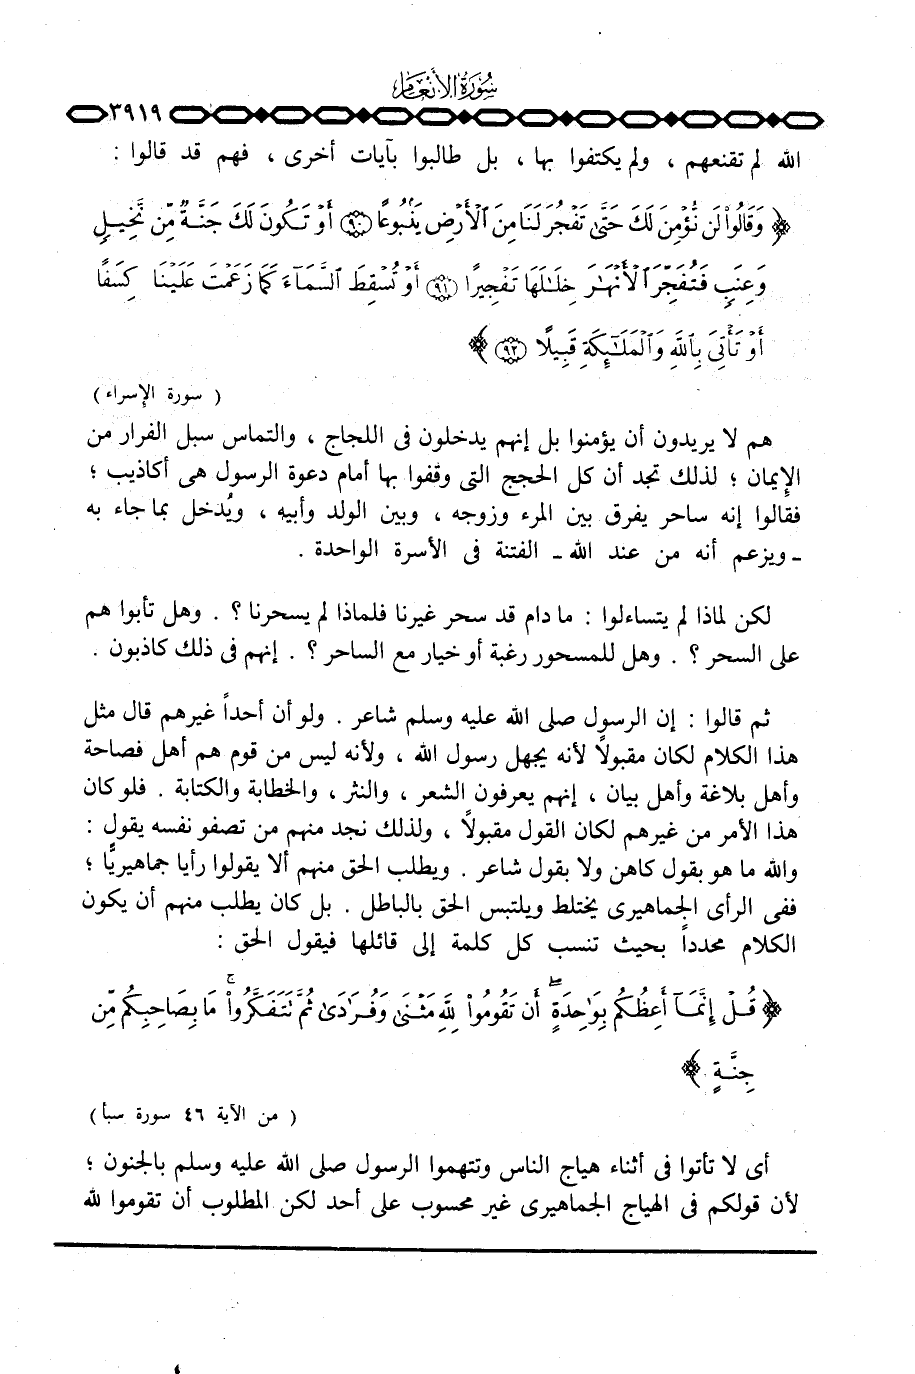 سُورَةُ الأَنْعَام
٣٩١٩
الله لم تقنعهم ، ولم يكتفوا بها ، بل طالبوا بآيات أخرى ، فهم قد قالوا :
﴿ وَقَالُواْ لَن نُّؤْمِنَ لَكَ حَتَّىٰ تَفْجُرَ لَنَا مِنَ ٱلْأَرْضِ يَنۢبُوعًا ۝٩٠ أَوْ تَكُونَ لَكَ جَنَّةٌ مِّن نَّخِيلٍ
وَعِنَبٍ فَتُفَجِّرَ ٱلْأَنْهَـٰرَ خِلَـٰلَهَا تَفْجِيرًا ۝٩١ أَوْ تُسْقِطَ ٱلسَّمَآءَ كَمَا زَعَمْتَ عَلَيْنَا كِسَفًا
أَوْ تَأْتِىَ بِٱللَّهِ وَٱلْمَلَـٰٓئِكَةِ قَبِيلًا ۝٩٢ ﴾
( سورة الإسراء )
هم لا يريدون أن يؤمنوا بل إنهم يدخلون فى اللجاج ، والتماس سبل الفرار من
الإيمان ؛ لذلك تجد أن كل الحجج التى وقفوا بها أمام دعوة الرسول هى أكاذيب ؛
فقالوا إنه ساحر يفرق بين المرء وزوجه ، وبين الولد وأبيه ، ويُدخل بما جاء به
ـ ويزعم أنه من عند الله ـ الفتنة فى الأسرة الواحدة .
لكن لماذا لم يتساءلوا : ما دام قد سحر غيرنا فلماذا لم يسحرنا ؟ . وهل تأبوا هم
على السحر ؟ . وهل للمسحور رغبة أو خيار مع الساحر ؟ . إنهم فى ذلك كاذبون .
ثم قالوا : إن الرسول صلى الله عليه وسلم شاعر . ولو أن أحداً غيرهم قال مثل
هذا الكلام لكان مقبولاً لأنه يجهل رسول الله ، ولأنه ليس من قوم هم أهل فصاحة
وأهل بلاغة وأهل بيان ، إنهم يعرفون الشعر ، والنثر ، والخطابة والكتابة . فلو كان
هذا الأمر من غيرهم لكان القول مقبولاً ، ولذلك نجد منهم من تصفو نفسه يقول :
والله ما هو بقول كاهن ولا بقول شاعر . ويطلب الحق منهم ألا يقولوا رأيا جماهيريًّا ؛
ففى الرأى الجماهيرى يختلط ويلتبس الحق بالباطل . بل كان يطلب منهم أن يكون
الكلام محدداً بحيث تنسب كل كلمة إلى قائلها فيقول الحق :
﴿ قُلْ إِنَّمَآ أَعِظُكُم بِوَٰحِدَةٍ ۖ أَن تَقُومُواْ لِلَّهِ مَثْنَىٰ وَفُرَٰدَىٰ ثُمَّ تَتَفَكَّرُواْ ۚ مَا بِصَاحِبِكُم مِّن
جِنَّةٍ ﴾
( من الآية ٤٦ سورة سبأ )
أى لا تأتوا فى أثناء هياج الناس وتتهموا الرسول صلى الله عليه وسلم بالجنون ؛
لأن قولكم فى الهياج الجماهيرى غير محسوب على أحد لكن المطلوب أن تقوموا لله